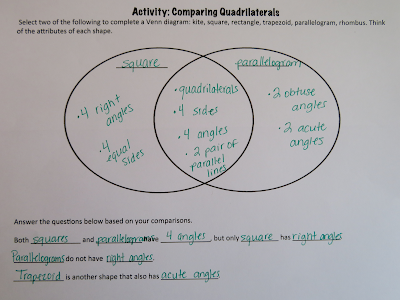 Activity: Comparing Quadrilaterals
Select two of the following to complete a Venn diagram: kite, square, rectangle, trapezoid, parallelogram, rhombus. Think
of the attributes of each shape.
square
• 4 right
angles
• 4
equal
sides
• quadrilaterals
• 4 sides
• 4 angles
• 2 pair of
parallel
lines
parallelogram
• 2 obtuse
angles
• 2 acute
angles
Answer the questions below based on your comparisons.
Both squares and parallelograms have 4 angles, but only square has right angles
Parallelograms do not have right angles.
Trapezoid is another shape that also has acute angles